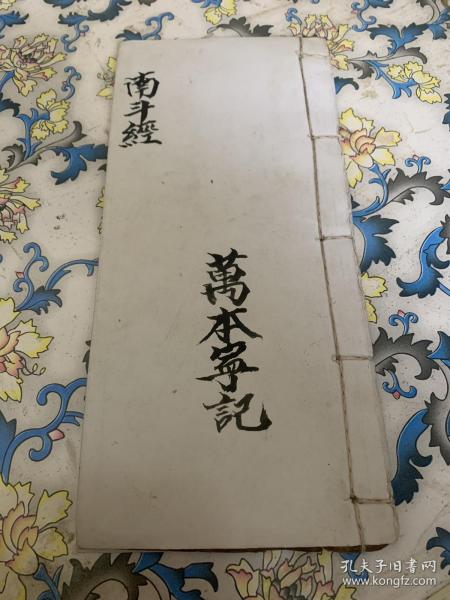 南斗經
萬本寧記
孔夫子旧书网
www.kongfz.com